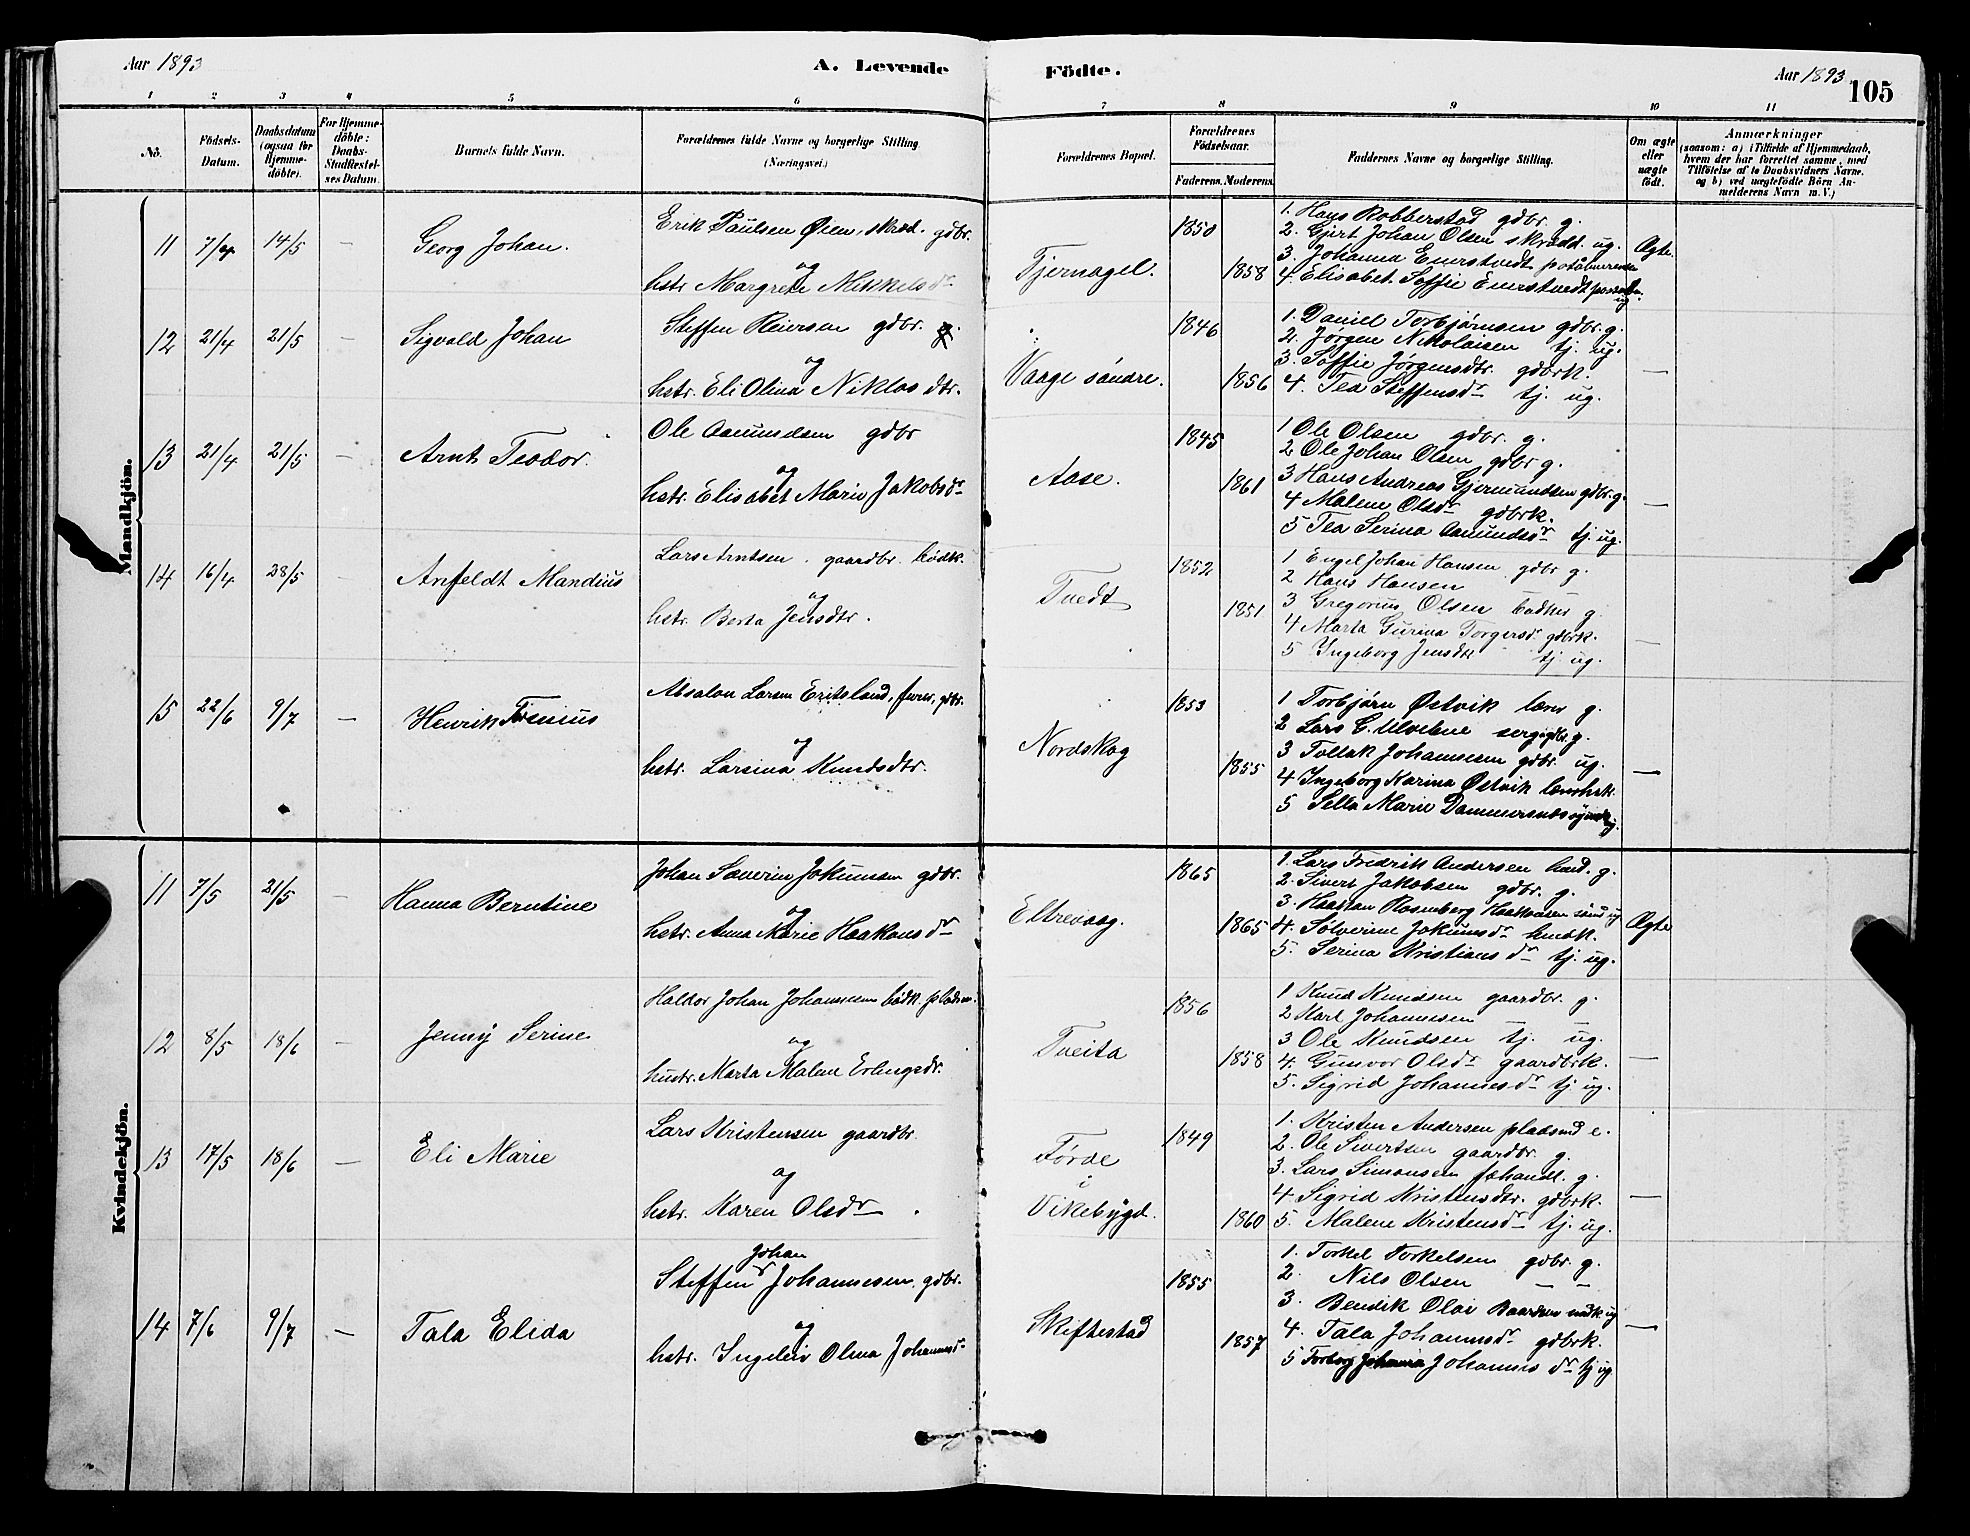 Aar 1893
A. Levende Födte.
Aar 1893
105
1 2 3 4 5 6 7 8 9 10 11
No.
Födsels-Datum.
Daabsdatum (ogsaa for Hjemme-döbte).
For Hjemme-döbte: Daabs-Stadfæstel-ses Datum
Barnets fulde Navn.
Forældrenes fulde Navne og borgerlige Stilling (Næringsvei.)
Forældrenes Bopæl.
Forældrenes Födselsaar.
Faderens. Moderens.
Faddernes Navne og borgerlige Stilling.
Om ægte eller uægte födt.
Anmærkninger
(saasom: a) i Tilfælde af Hjemmedaab, hvem der har forrettet samme, med Tilföielse af to Daabsvidners Navne, og b) ved uægtefödte Börn An-melderens Navn m. V.)
Mandkjön.
11 7/4 14/5 — Georg Johan.
Erik Paulsen Øien, skræd. gdbr.
og
hstr. Margrete Mikkelsdr
Tjernagel.
1850
1858
1. Hans Robberstad gdbr. g.
2. Gjert Johan Olsen skrædd. ug.
3. Johanna Enerstvedt
4. Elisabet Soffie Enerstvedt
Ægte.
12 21/4 21/5 — Sigvald Johan
Steffen Reiersen gdbr.
og
hstr. Eli Olina Niklasdtr.
Vaage söndre.
1846
1856
1. Daniel Torbjørnsen gdbr. g.
2. Jørgen Nikolaisen tj. ug.
3. Soffie Jørgensdtr. gdbrk.
4. Tea Steffensdr tj. ug.
—
13 21/4 21/5 — Arnt Teodor.
Ole Aamundsen gdbr
og
hstr. Elisabet Marie Jakobsdr
Aase.
1845
1861
1 Ole Olsen gdbr. g.
2 Ole Johan Olsen gdbr g.
3 Hans Andreas Gjermundsen gdbr. g.
4 Malene Olsdr gdbrk.
5 Tea Serina Aamundsdr tj. ug.
—
14 16/4 28/5 — Anfeldt Mandius
Lars Arntsen. gaardbr. bødk.
og
hstr. Berta Jensdtr.
Tvedt
1852
1851
1 Engel Johan Hansen gdbr g.
2 Hans Hansen
3 Gregorius Olsen bødker g.
4 Marta Gurina Torgersdr gdbrk.
5 Ingeborg Jensdtr tj. ug.
—
15 22/6 9/7 — Henrik
Absalon Larsen Eritsland, furer, gdbr.
og
hstr. Larsina Knudsdtr.
Nordskog
1853
1855
1 Torbjørn Østvik lærer g.
2 Lars G. Ulvebne gdbr. g.
3 Tollak Johannesen gdbr. ug.
4 Ingeborg Karina Østvik
5 Sella Marie
—
Kvindekjön.
11 7/5 21/5 — Hanna Berntine
Johan Severin Jokumsen gdbr.
og
hstr. Anna Marie Haakonsdr
Eltrevaag.
1865
1865
1. Lars Fredrik Andersen g.
2. Sivert Jakobsen gdbr. g.
3. Haakon Rosenberg Haakonsen ug
4. Solverine Jokumsdr
5. Serina Kristiansdr tj. ug.
Ægte
12 8/5 18/6 — Jenny Serine
Haldor Johan Johannesen bødk. pladsm.
og
hustr. Marta Malene Erlingsdr.
Tveita
1856
1858
1 Knud Knudsen gaardbr. g.
2 Karl Johannesen
3 Ole Knudsen tj. ug.
4. Gunvor Olsdr gaardbrk.
5. Sigrid Johannesdr tj ug.
—
13 17/5 18/6 — Eli Marie
Lars Kristensen gaardbr.
og
hstr. Karen Olsdr.
Førde
i
Vikebygd.
1849
1860
1. Kristen Andersen pladsmd e.
2. Ole Sivertsen gaardbr. g.
3. Lars Simonsen g.
4 Sigrid Kristensdtr. gdbrk.
5. Malene Kristensdr tj. ug.
—
14 7/6 9/7 — Tala Elida
Johan
Steffen Johannesen. gdbr.
og
hstr. Ingeleiv Olina Johannesdr
Skiftestad
1855
1857
1. Torkel Torkelsen gdbr. g.
2. Nils Olsen — —
3. Bendik Olai Baardsen ug
4. Tala Johannesdr gdbrk.
5 Torborg Johanna Johannesdr tj ug
—